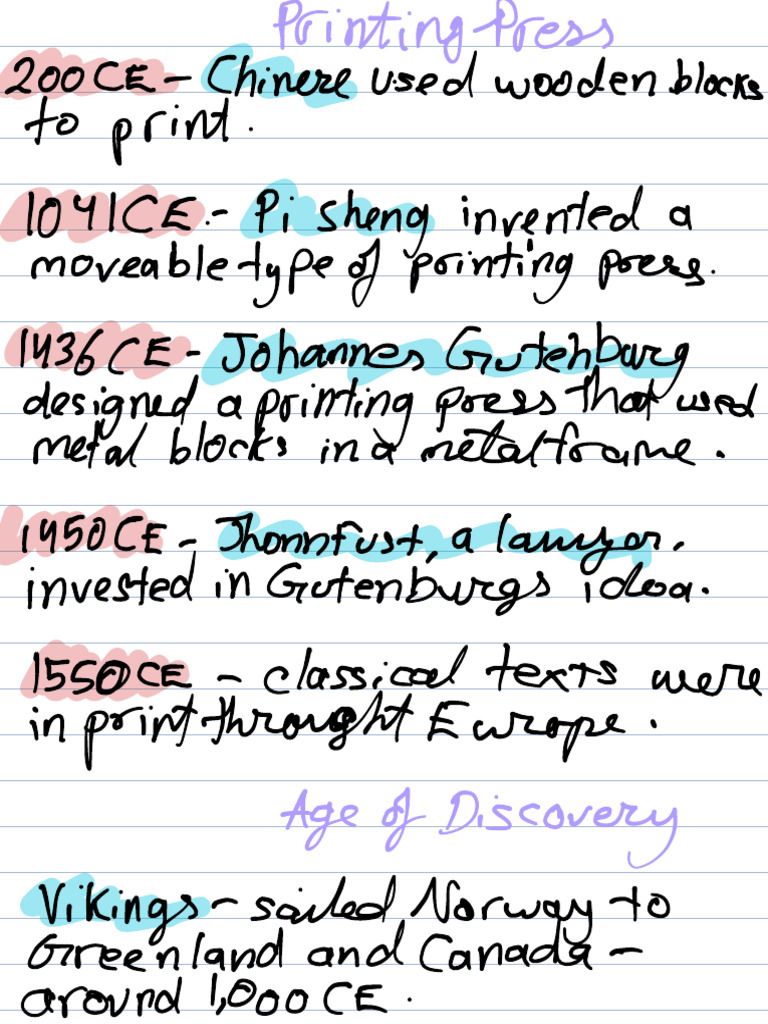 Printing Press
200 CE - Chinese used wooden blocks
to print.
1041 CE - Pi sheng invented a
moveable type of printing press.
1436 CE - Johannes Gutenburg
designed a printing press that used
metal blocks in a metal frame.
1450 CE - Jhonnfust, a lawyor,
invested in Gutenburgs idea.
1550 CE - classical texts were
in print throught Europe.
Age of Discovery
Vikings - sailed Norway to
Greenland and Canada -
around 1,000 CE.